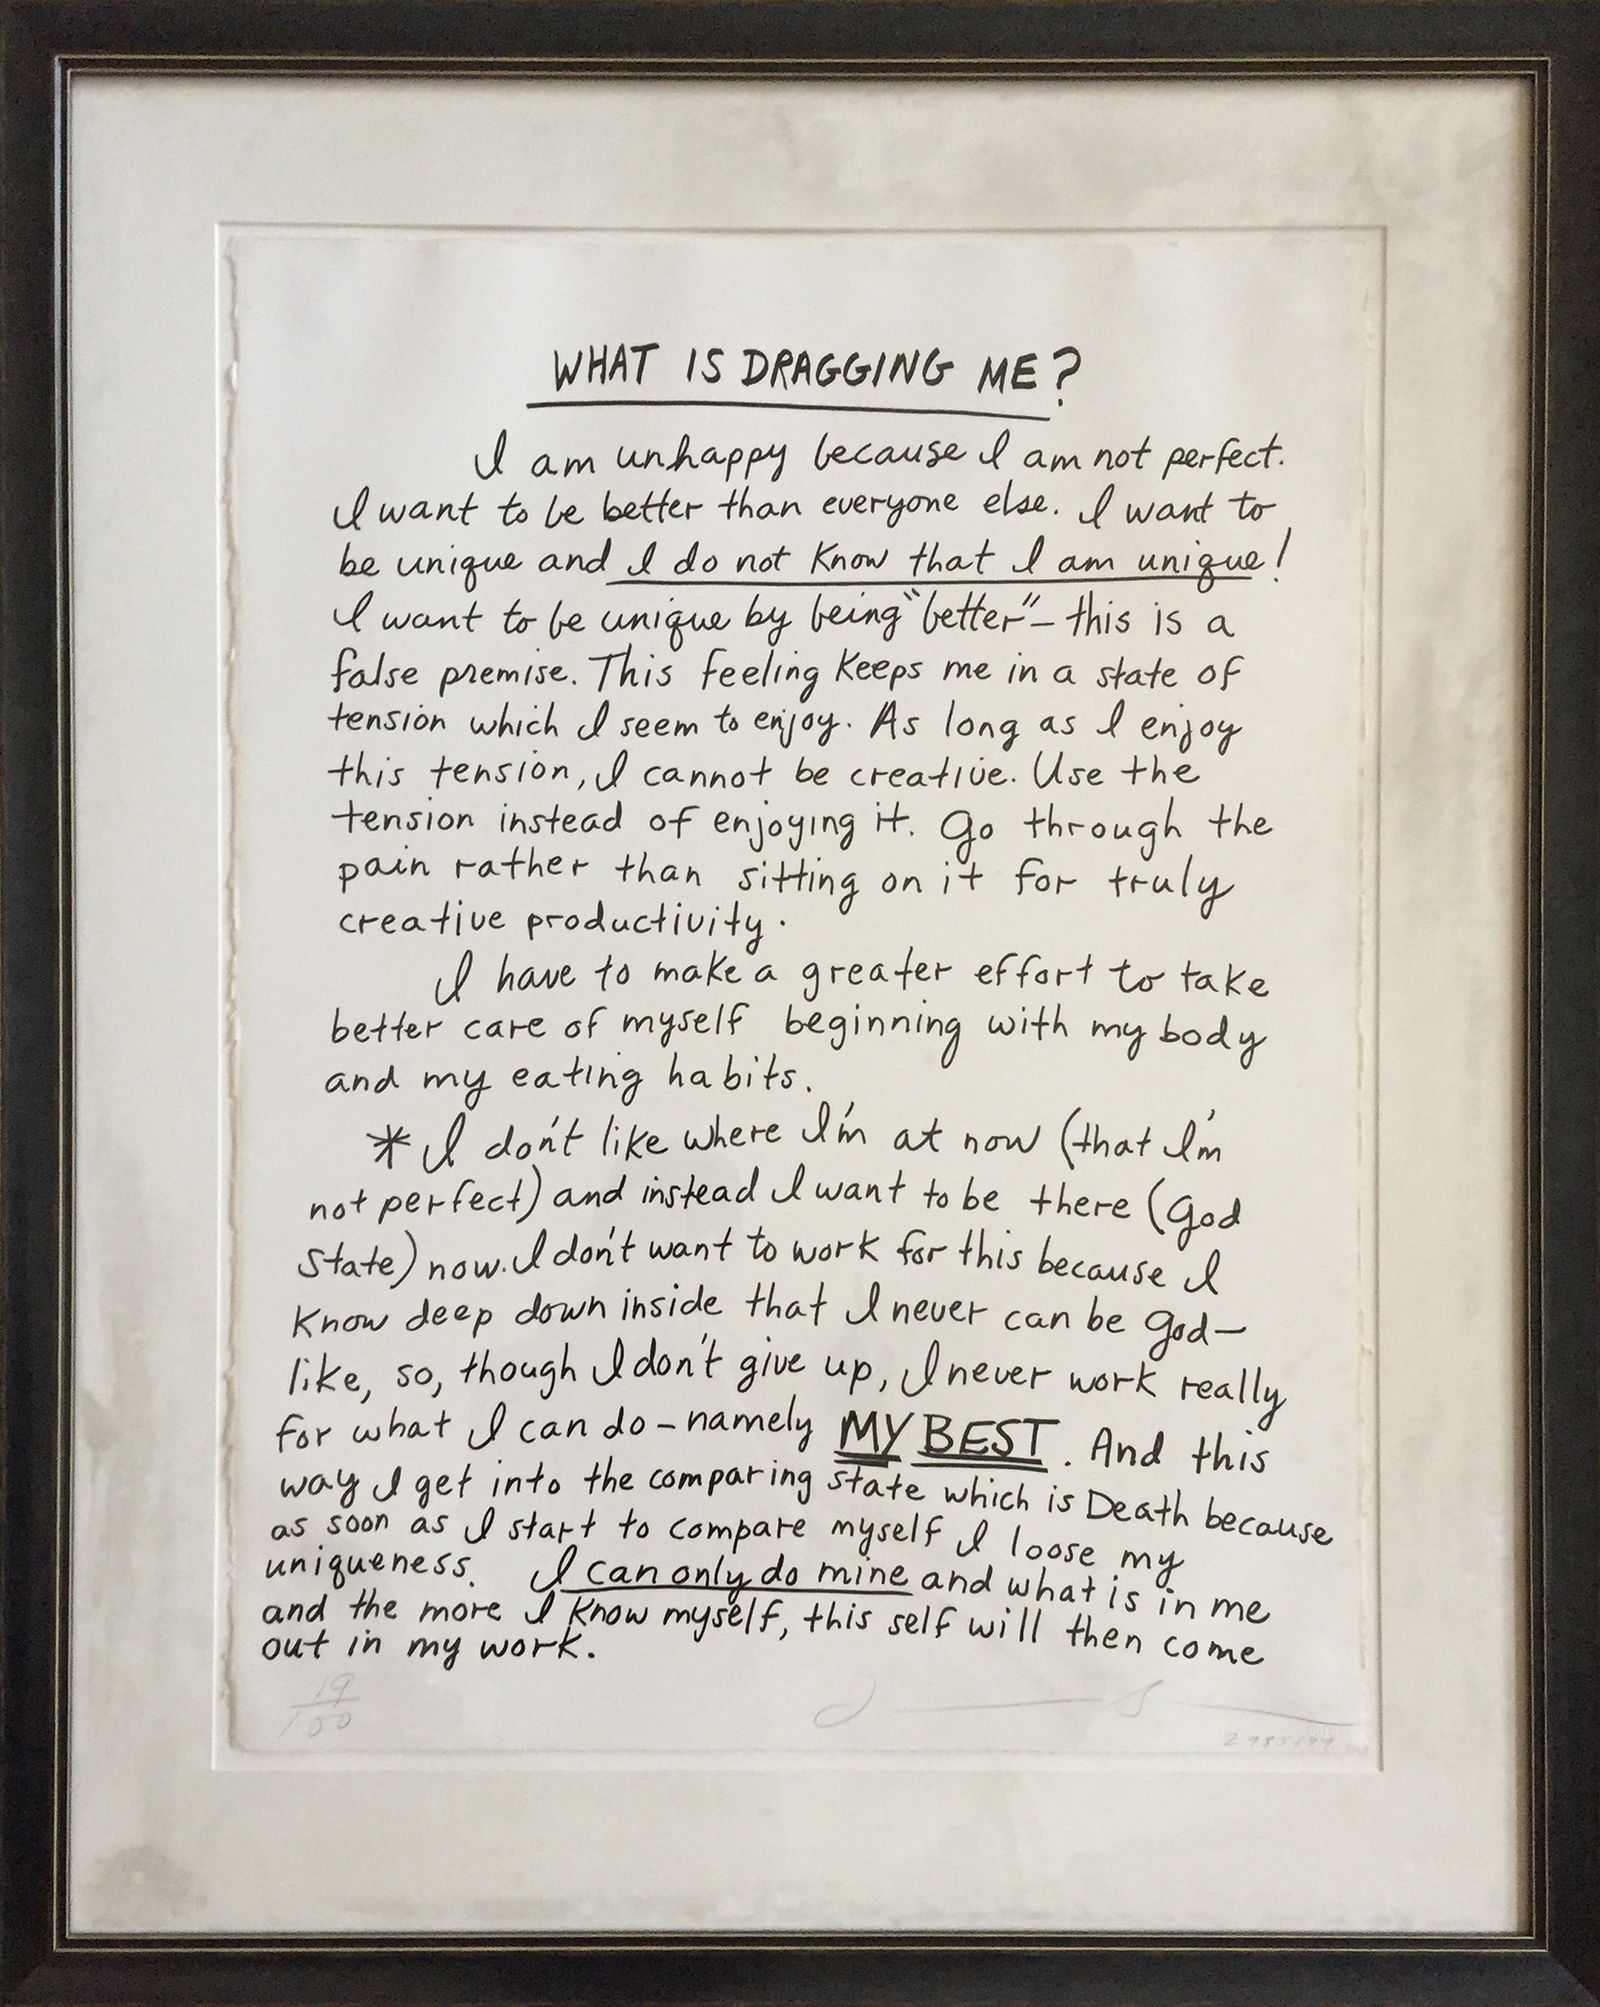 WHAT IS DRAGGING ME?
I am unhappy because I am not perfect.
I want to be better than everyone else. I want to
be unique and I do not know that I am unique!
I want to be unique by being "better" – this is a
false premise. This feeling keeps me in a state of
tension which I seem to enjoy. As long as I enjoy
this tension, I cannot be creative. Use the
tension instead of enjoying it. Go through the
pain rather than sitting on it for truly
creative productivity.
I have to make a greater effort to take
better care of myself beginning with my body
and my eating habits.
* I don't like where I'm at now (that I'm
not perfect) and instead I want to be there (God
state) now. I don't want to work for this because I
know deep down inside that I never can be God–
like, so, though I don't give up, I never work really
for what I can do – namely MY BEST. And this
way I get into the comparing state which is Death because
as soon as I start to compare myself I loose my
uniqueness. I can only do mine and what is in me
and the more I know myself, this self will then come
out in my work.
19/100